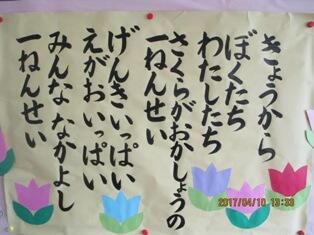 きょうから
ぼくたち
わたしたち
さくらがおかしょうの
一ねんせい
げんきいっぱい
えがおいっぱい
みんな なかよし
一ねんせい
2017/04/10 13:33